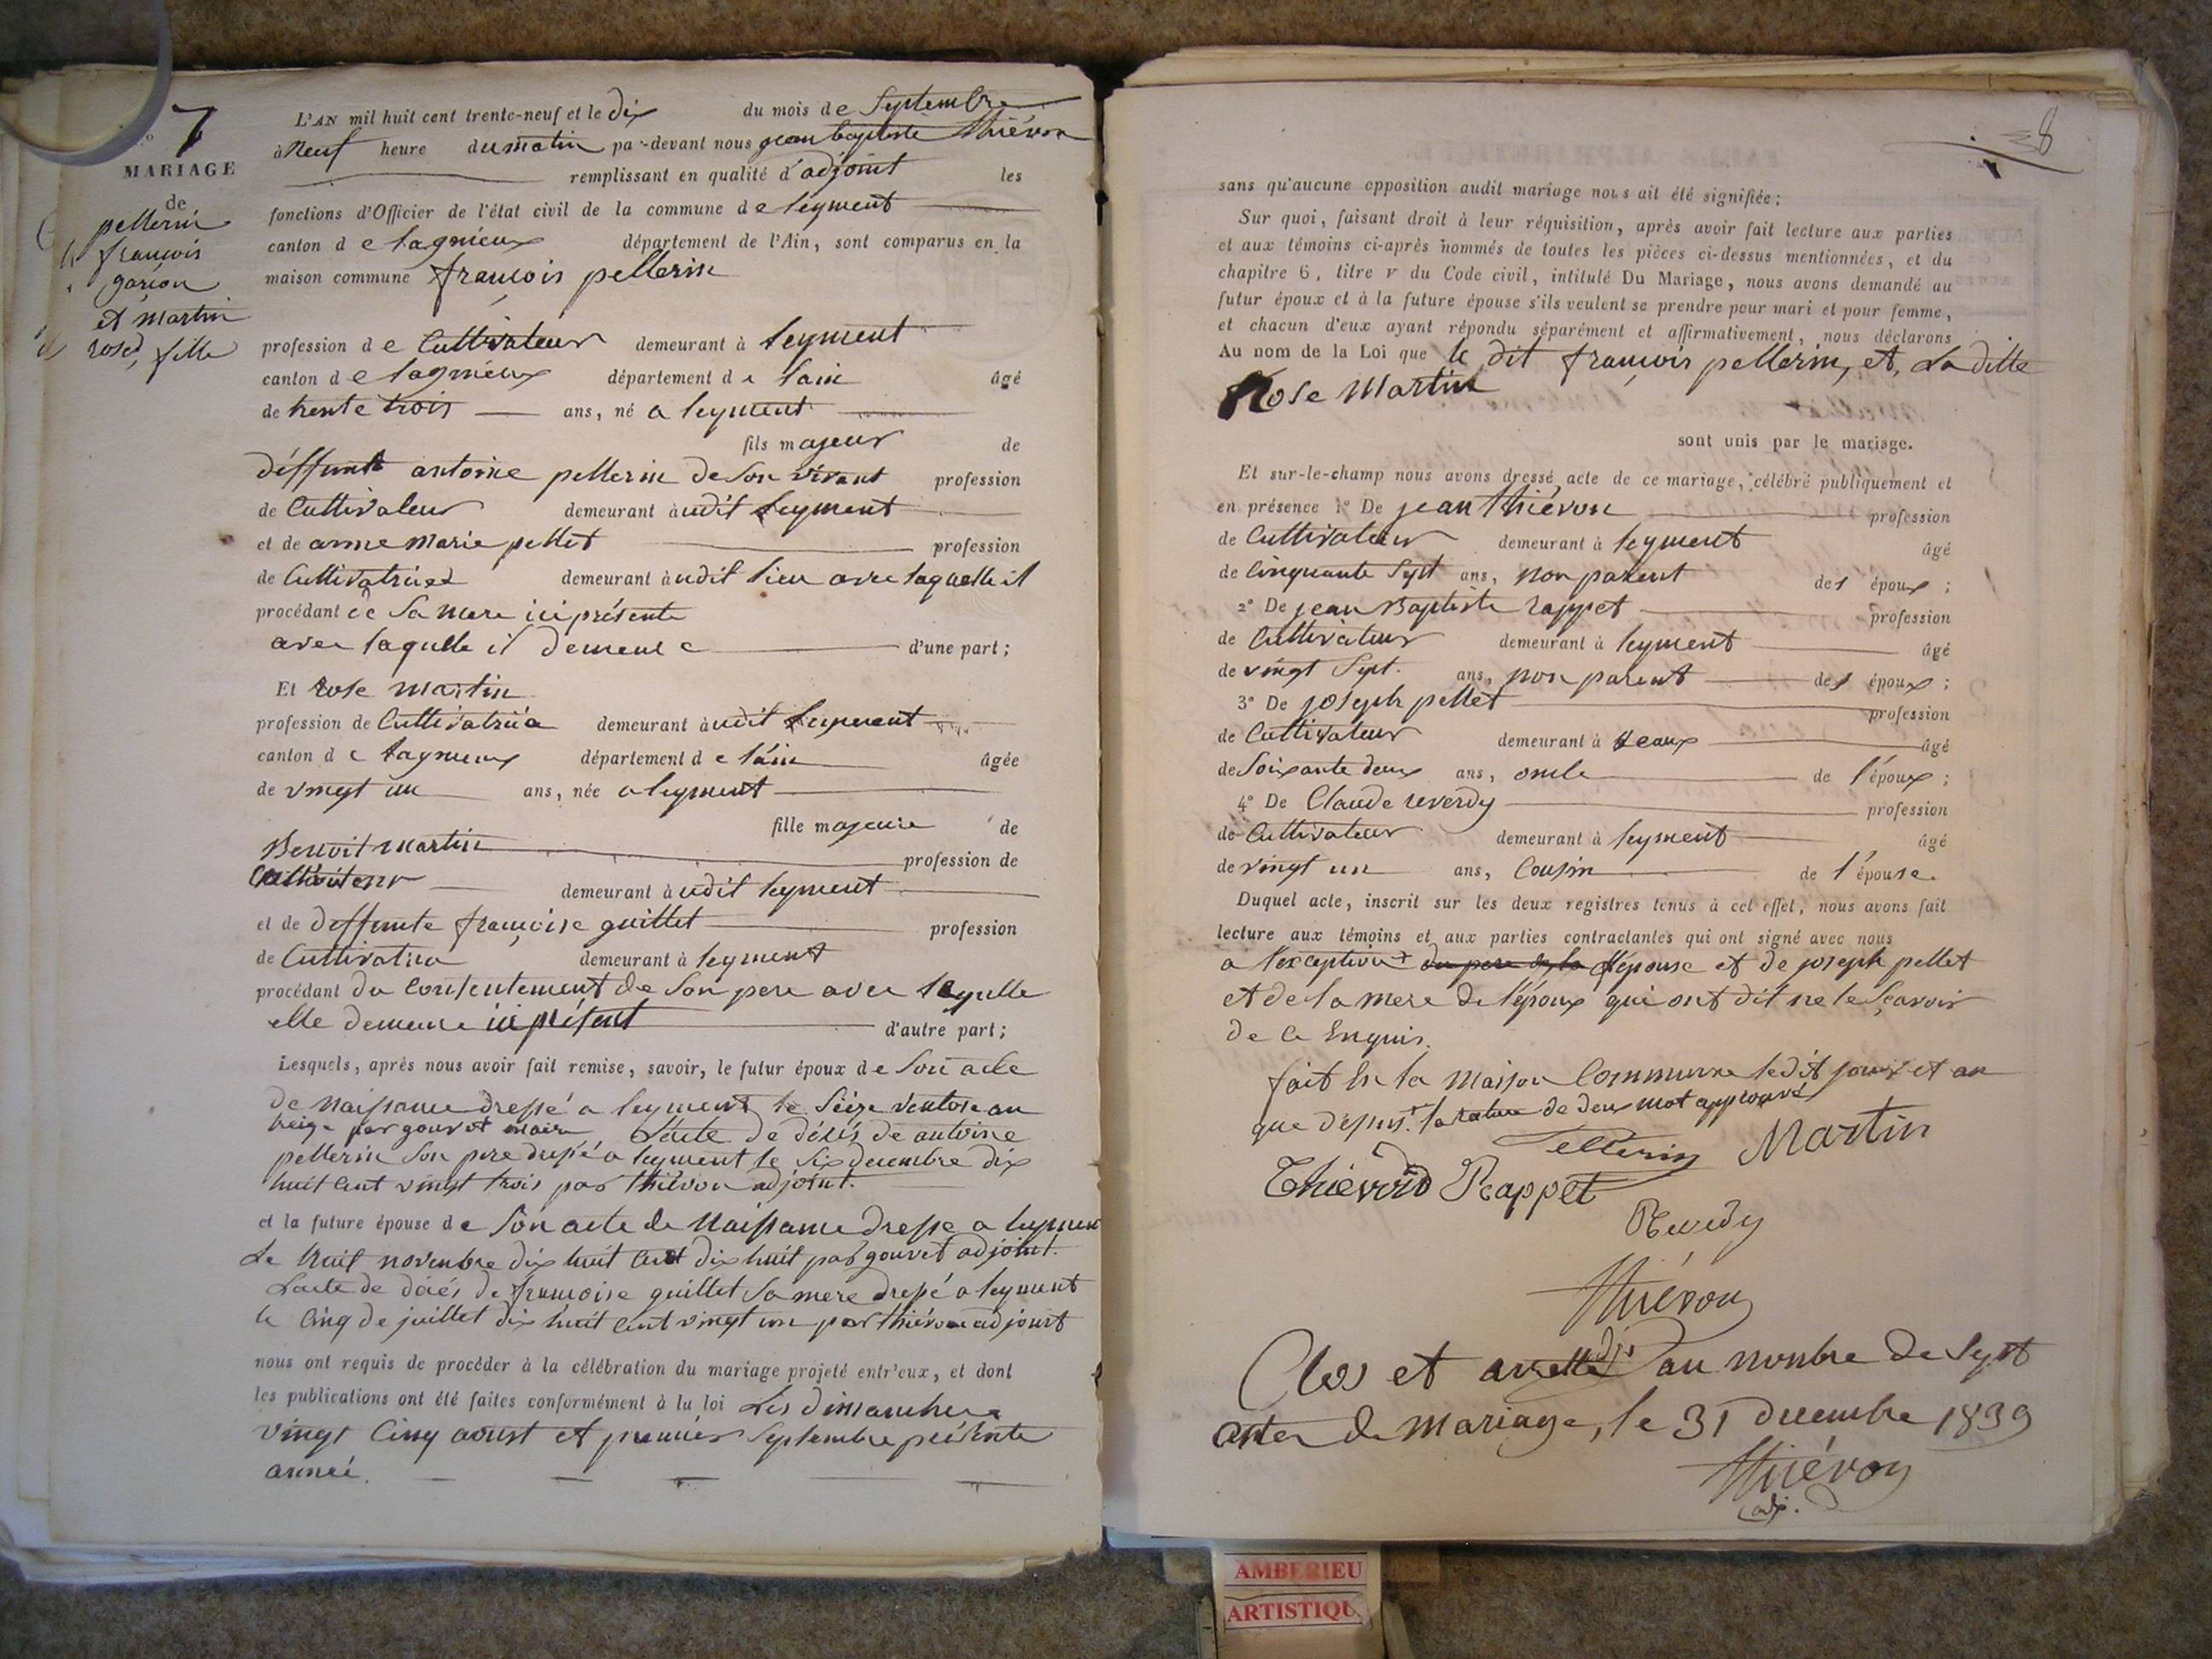 No 7
MARIAGE
de
pellerin
françois
garçon
et Martin
rose, fille
L'AN mil huit cent trente-neuf et le dix du mois de Septembre
à Neuf heure du matin par-devant nous jean baptiste Thiévon
remplissant en qualité d'adjoint les
fonctions d'Officier de l'état civil de la commune de leyment
canton de lagnieux département de l'Ain, sont comparus en la
maison commune françois pellerin
profession de Cultivateur demeurant à leyment
canton de lagnieux département de lain âgé
de trente trois ans, né a leyment
fils majeur de
déffunt antoine pellerin de son vivant profession
de Cultivateur demeurant àudit leyment
et de anne Marie pellet profession
de Cultivatrice demeurant àudit lieu avec laquelle il
procédant de Sa mere ici présente
avec laquelle il demeure d'une part;
Et rose martin
profession de Cultivatrice demeurant àudit leyment
canton de lagnieux département de lain âgée
de vingt un ans, née a leyment
fille majeure de
Benoit martin profession de
Cultivateur demeurant àudit leyment
et de deffunte françoise guillet profession
de Cultivatrice demeurant à leyment
procédant du Consentement de Son pere avec lequelle
elle demeure ici présent d'autre part;
Lesquels, après nous avoir fait remise, savoir, le futur époux de Son acte
de Naissance dressé a leyment le Seize Ventose an
treize par gouvet maire L'acte de décés de antoine
pellerin Son pere dressé a leyment le Six decembre dix
huit cent vingt trois par thiévon adjoint.
et la future épouse de Son acte de Naissance dresse a leyment
Le huit novembre dix huit cent dix huit par gouvet adjoint.
Lacte de décés de françoise guillet Sa mere dressé a leyment
le Cinq de juillet dix huit cent vingt un par thiévon adjoint
nous ont requis de procéder à la célébration du mariage projeté entr'eux, et dont
les publications ont été faites conformément à la loi Les dimanches
vingt Cinq aoust et premier Septembre présente
année.
8
sans qu'aucune opposition audit mariage nous ait été signifiée;
Sur quoi, faisant droit à leur réquisition, après avoir fait lecture aux parties
et aux témoins ci-après nommés de toutes les pièces ci-dessus mentionnées, et du
chapitre 6, titre v du Code civil, intitulé Du Mariage, nous avons demandé au
futur époux et à la future épouse s'ils veulent se prendre pour mari et pour femme,
et chacun d'eux ayant répondu séparément et affirmativement, nous déclarons
Au nom de la Loi que le dit françois pellerin, et, La ditte
Rose Martin
sont unis par le mariage.
Et sur-le-champ nous avons dressé acte de ce mariage, célébré publiquement et
en présence 1° De jean Thiévon profession
de Cultivateur demeurant à leyment âgé
de Cinquante Sept ans, non parent des époux;
2° De jean Baptiste rappet profession
de Cultivateur demeurant à leyment âgé
de vingt Sept. ans, non parent des époux;
3° De joseph pellet profession
de Cultivateur demeurant à Veaux âgé
de Soixante deux ans, oncle de l'époux;
4° De Claude reverdy profession
de Cultivateur demeurant à leyment âgé
de vingt un ans, Cousin de l'épouse.
Duquel acte, inscrit sur les deux registres tenus à cet effet, nous avons fait
lecture aux témoins et aux parties contractantes qui ont signé avec nous
a l'exception du pere de la l'épouse et de joseph pellet
et de la mere de l'époux qui ont dit ne le Sçavoir
de Ce Enquis.
fait En la Maison Commune ledit jour et an
que dessus. la rature de deux mot approuvé
Pellerin Martin
Thiévon Rappet
Reverdy
Thiévon
adj.
Clos et arretté au nombre de Sept
actes de Mariage, le 31 decembre 1839
Thiévon
adj.
AMBERIEU
ARTISTIQU